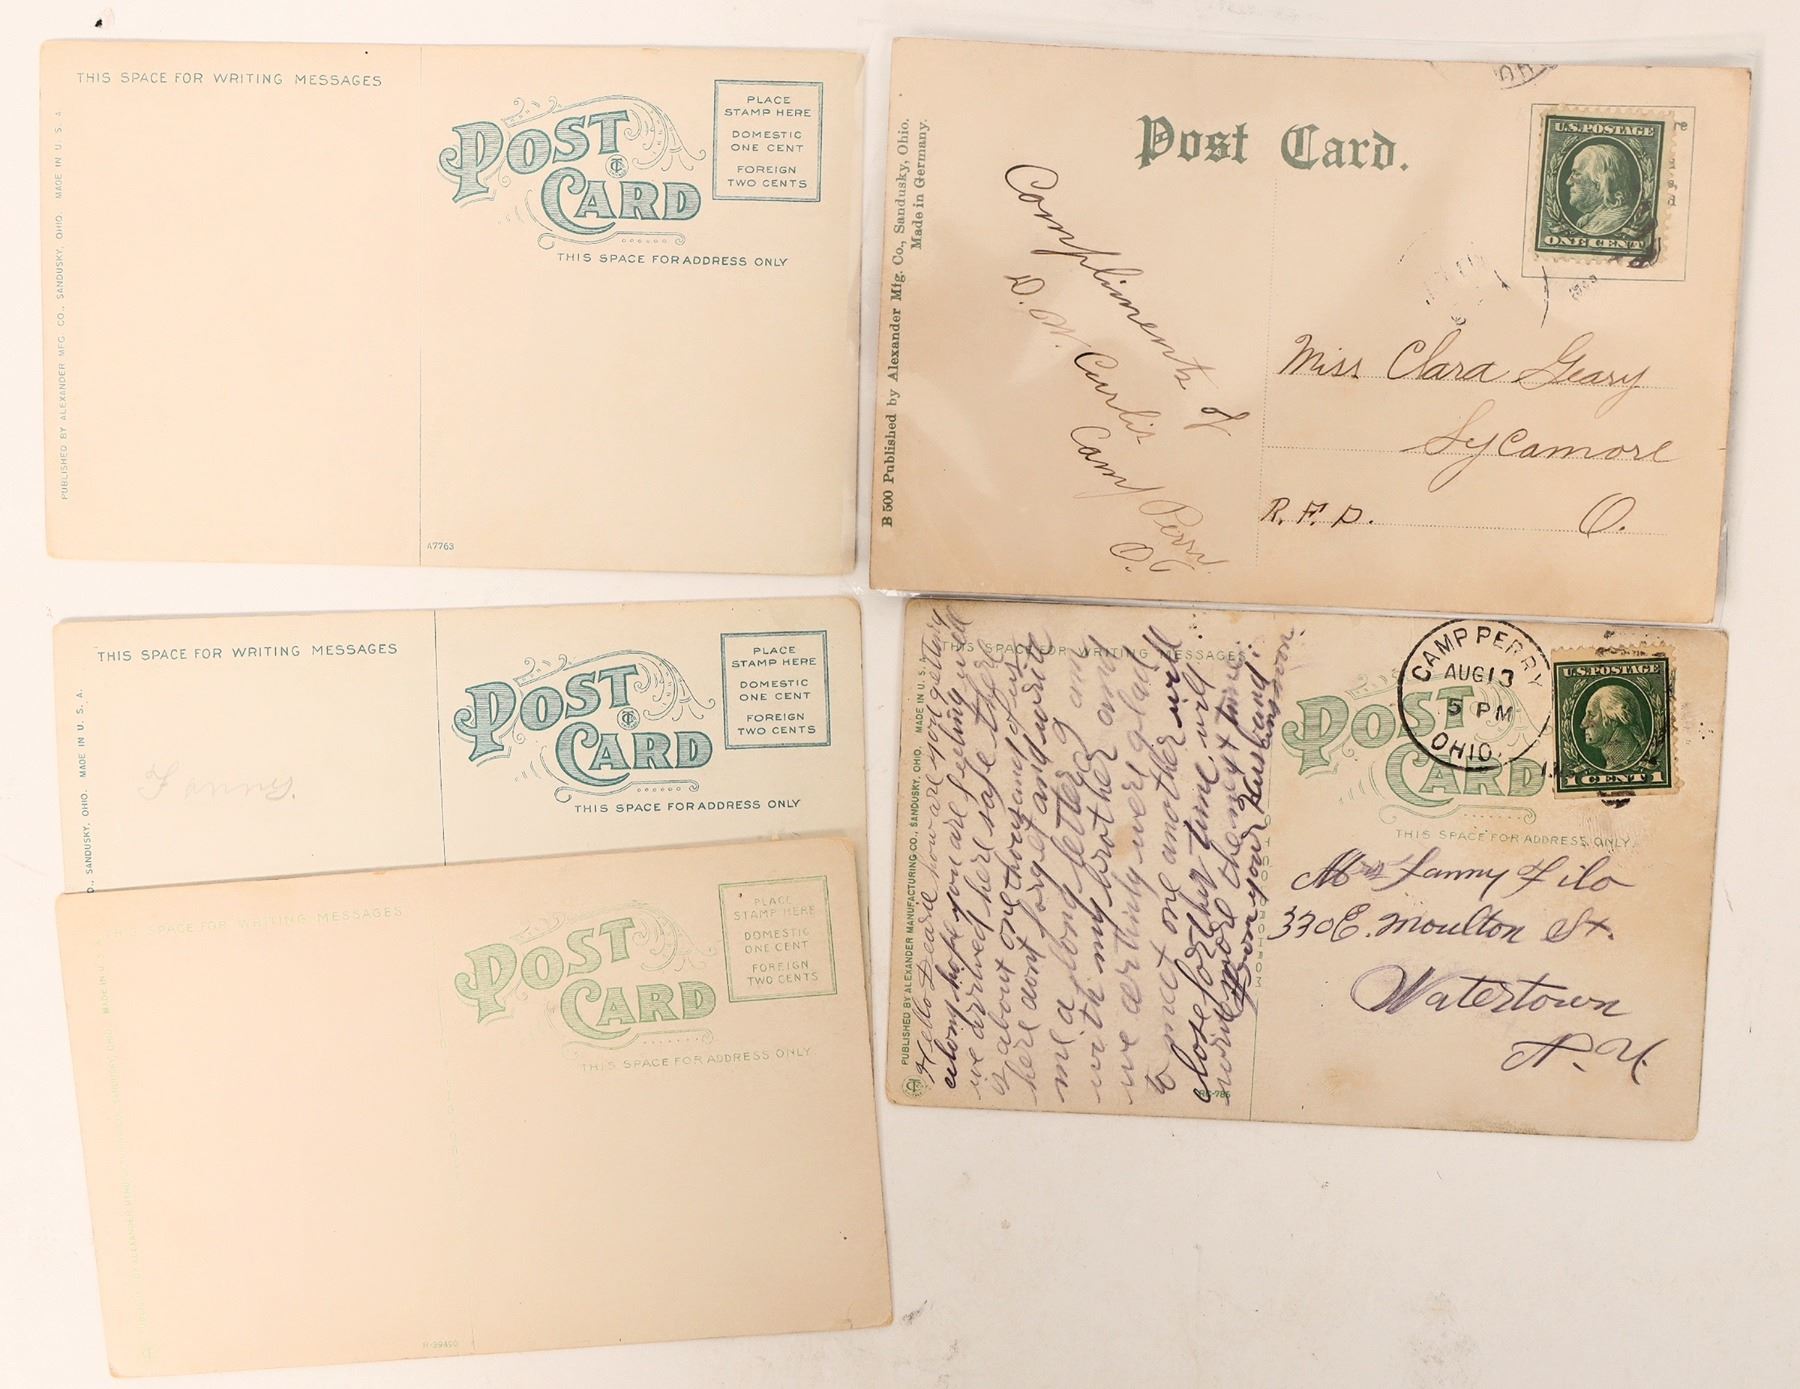 THIS SPACE FOR WRITING MESSAGES
POST
CARD
PLACE
STAMP HERE
DOMESTIC
ONE CENT
FOREIGN
TWO CENTS
THIS SPACE FOR ADDRESS ONLY
PUBLISHED BY ALEXANDER MFG. CO., SANDUSKY, OHIO. MADE IN U. S. A.
A7763
B 500 Published by Alexander Mfg. Co., Sandusky, Ohio.
Made in Germany.
Post Card.
U.S. POSTAGE
ONE CENT
Compliments of
D. W. Curlis
Camp Perry
O.
Miss Clara Geary
Sycamore
R. F. D. O.
THIS SPACE FOR WRITING MESSAGES
POST
CARD
PLACE
STAMP HERE
DOMESTIC
ONE CENT
FOREIGN
TWO CENTS
THIS SPACE FOR ADDRESS ONLY
SANDUSKY, OHIO. MADE IN U. S. A.
Fanny.
THIS SPACE FOR WRITING MESSAGES
POST
CARD
PLACE
STAMP HERE
DOMESTIC
ONE CENT
FOREIGN
TWO CENTS
THIS SPACE FOR ADDRESS ONLY
THIS SPACE FOR WRITING MESSAGES
PUBLISHED BY ALEXANDER MANUFACTURING CO., SANDUSKY, OHIO. MADE IN U. S. A.
Hello Deare how are you getting
along hope you are feeling well
we arrived here safe there
is about one thousand of us
here dont forget and write
me a long letter I am
with my brother and
we certinly were glad
to meet one another will
close for this time will
write more the next time
From your Husband
POST
CARD
THIS SPACE FOR ADDRESS ONLY.
CAMP PERRY
AUG 13
5 PM
OHIO.
U.S. POSTAGE
1 CENT 1
Mrs Fanny Filo
330 E. Moulton St.
Watertown
N. Y.